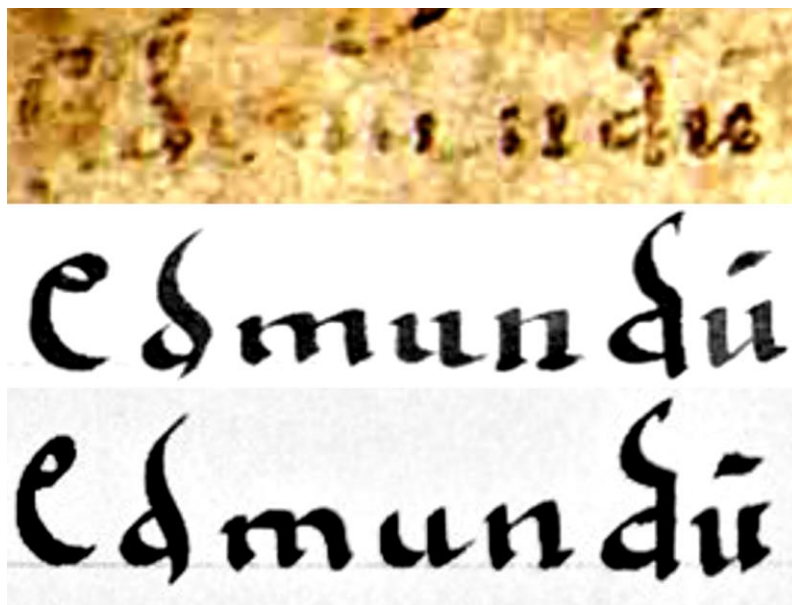 Edmundū
Edmundū